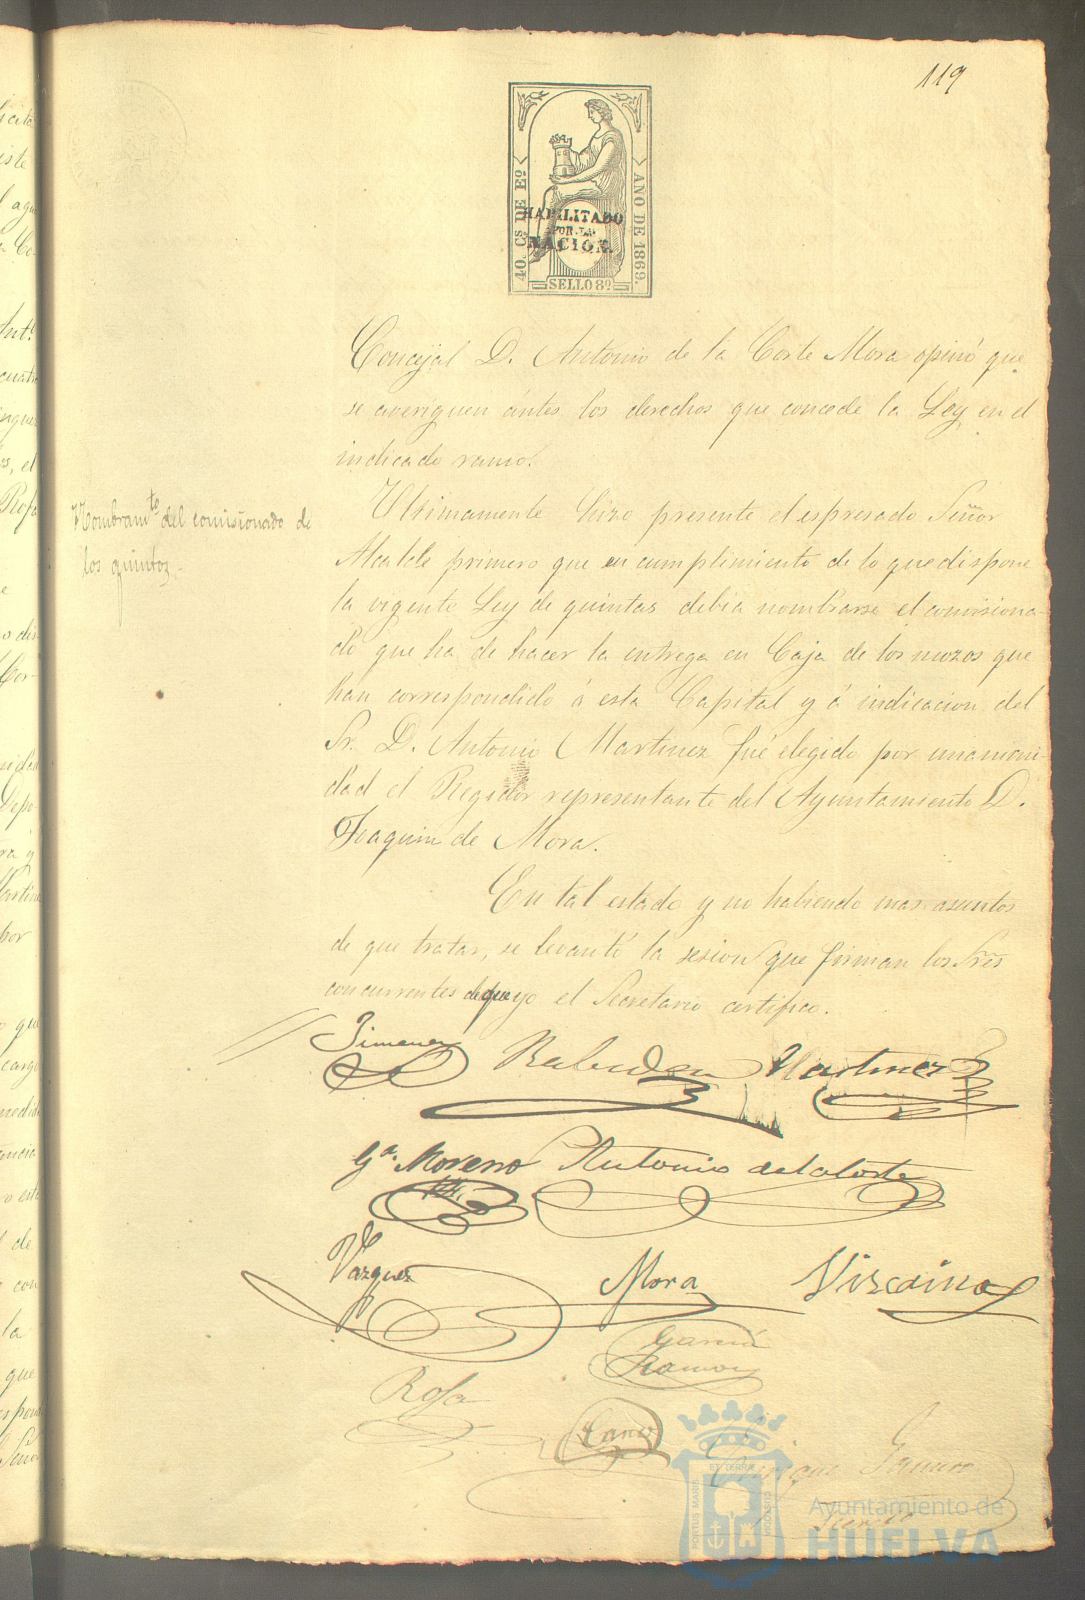 119
40. Cs DE Eº
AÑO DE 1869.
HABILITADO
POR LA
NACION.
SELLO 8º
Concejal D. Antonio de la Corte Mora opinó que
se averiguen ántes los derechos que concede la Ley en el
indicado ramo.
Nombramto del comisionado de
los quintos.-
Ultimamente hizo presente el espresado Señor
Alcalde primero que en cumplimiento de lo que dispone
la vigente Ley de quintas debia nombrarse el comisiona-
do que ha de hacer la entrega en Caja de los mozos que
han correspondido á esta Capital y á indicacion del
Sr. D. Antonio Martinez fué elegido por unanimi-
dad el Regidor representante del Ayuntamiento D.
Joaquin de Mora.
En tal estado y no habiendo mas asuntos
de que tratar, se levantó la sesion que firman los Sres
concurrentes de que yo el Secretario certifico.
Jimenez
Martinez
Ga. Moreno
Antonio de la Corte
Vazquez
Mora
Vizcaino
García
Ramos
Rosa
Enrique
PORTUS MARIS
ET TERRE
CUSTODIA
Ayuntamiento de
HUELVA